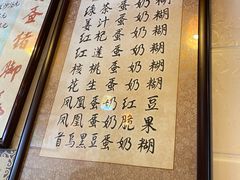 绿茶蛋奶糊
姜汁蛋奶糊
红杞蛋奶糊
红莲蛋奶糊
核桃蛋奶糊
花生蛋奶糊
凤凰蛋奶红豆
凤凰蛋奶脆果
首乌黑豆蛋奶糊
蛋猪脚